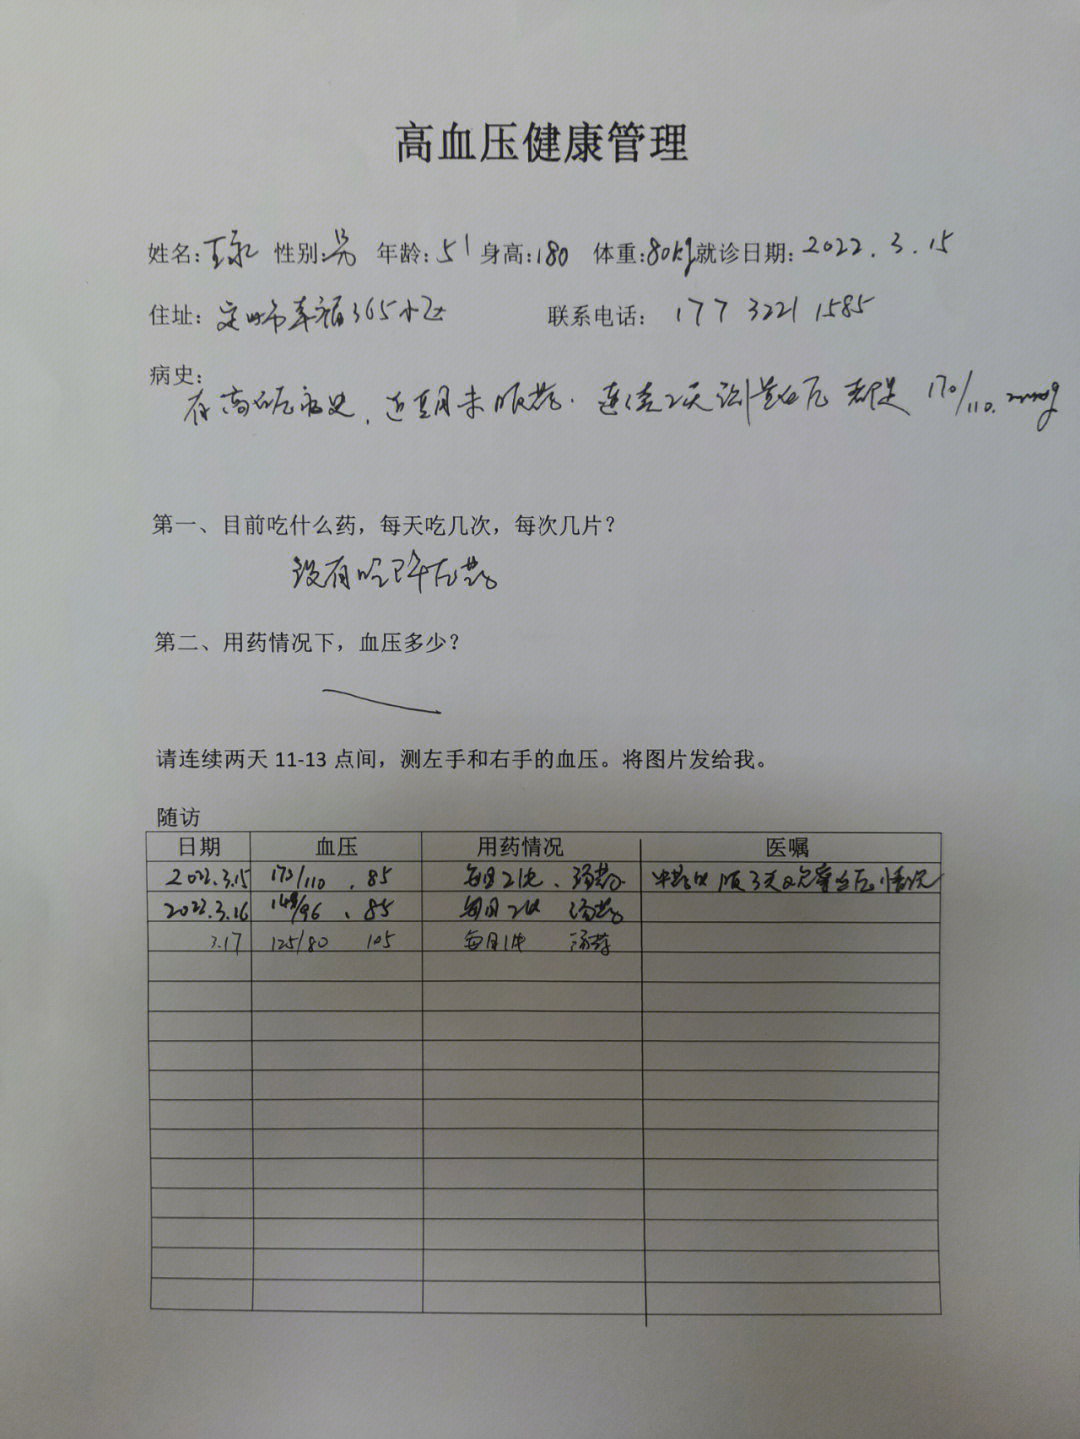 高血压健康管理
姓名:王永 性别:男 年龄:51 身高:180 体重:80kg 就诊日期:2022.3.15
住址:定州市幸福365小区 联系电话: 177 3221 1585
病史:
有高血压病史,近期未服药.连续2天测量血压都是170/110.mmHg
第一、目前吃什么药,每天吃几次,每次几片?
没有吃降压药
第二、用药情况下,血压多少?
请连续两天11-13点间,测左手和右手的血压。将图片发给我。
随访
日期 血压 用药情况 医嘱
2022.3.15 /110 、85 每日2次、汤药 中药 服3天 观察血压情况
2022.3.16 148/96 、85 每日2次 汤药
3.17 125/80 105 每日1次 汤药